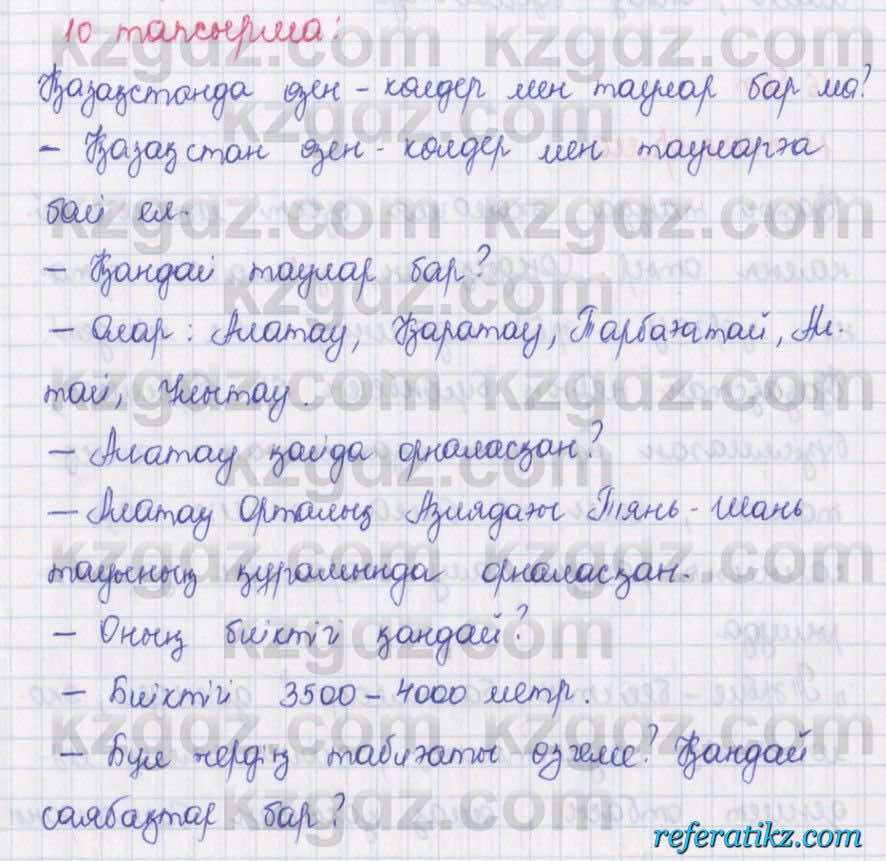 10 тапсырма:
Қазақстанда өзен - көлдер мен таулар бар ма?
- Қазақстан өзен - көлдер мен тауларға
бай ел.
- Қандай таулар бар?
- Олар: Алатау, Қаратау, Тарбағатай, Ал-
тай, Ұлытау.
- Алатау қайда орналасқан?
- Алатау Орталық Азиядағы Тянь - Шань
тауының құрамында орналасқан.
- Оның биіктігі қандай?
- Биіктігі 3500 - 4000 метр.
- Бұл жердің табиғаты өзгеше? Қандай
саябақтар бар?
kzgdz.com
referatikz.com